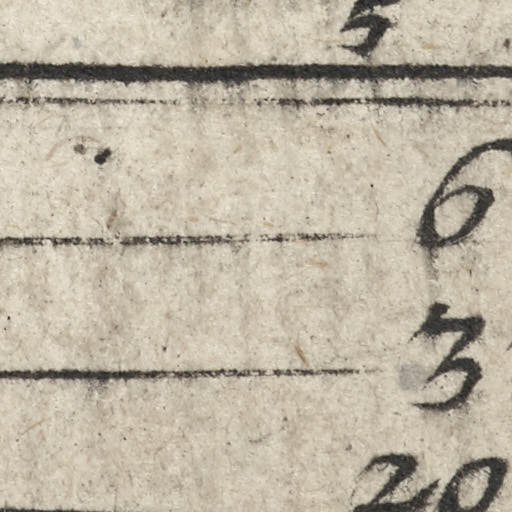 5
6
3
20